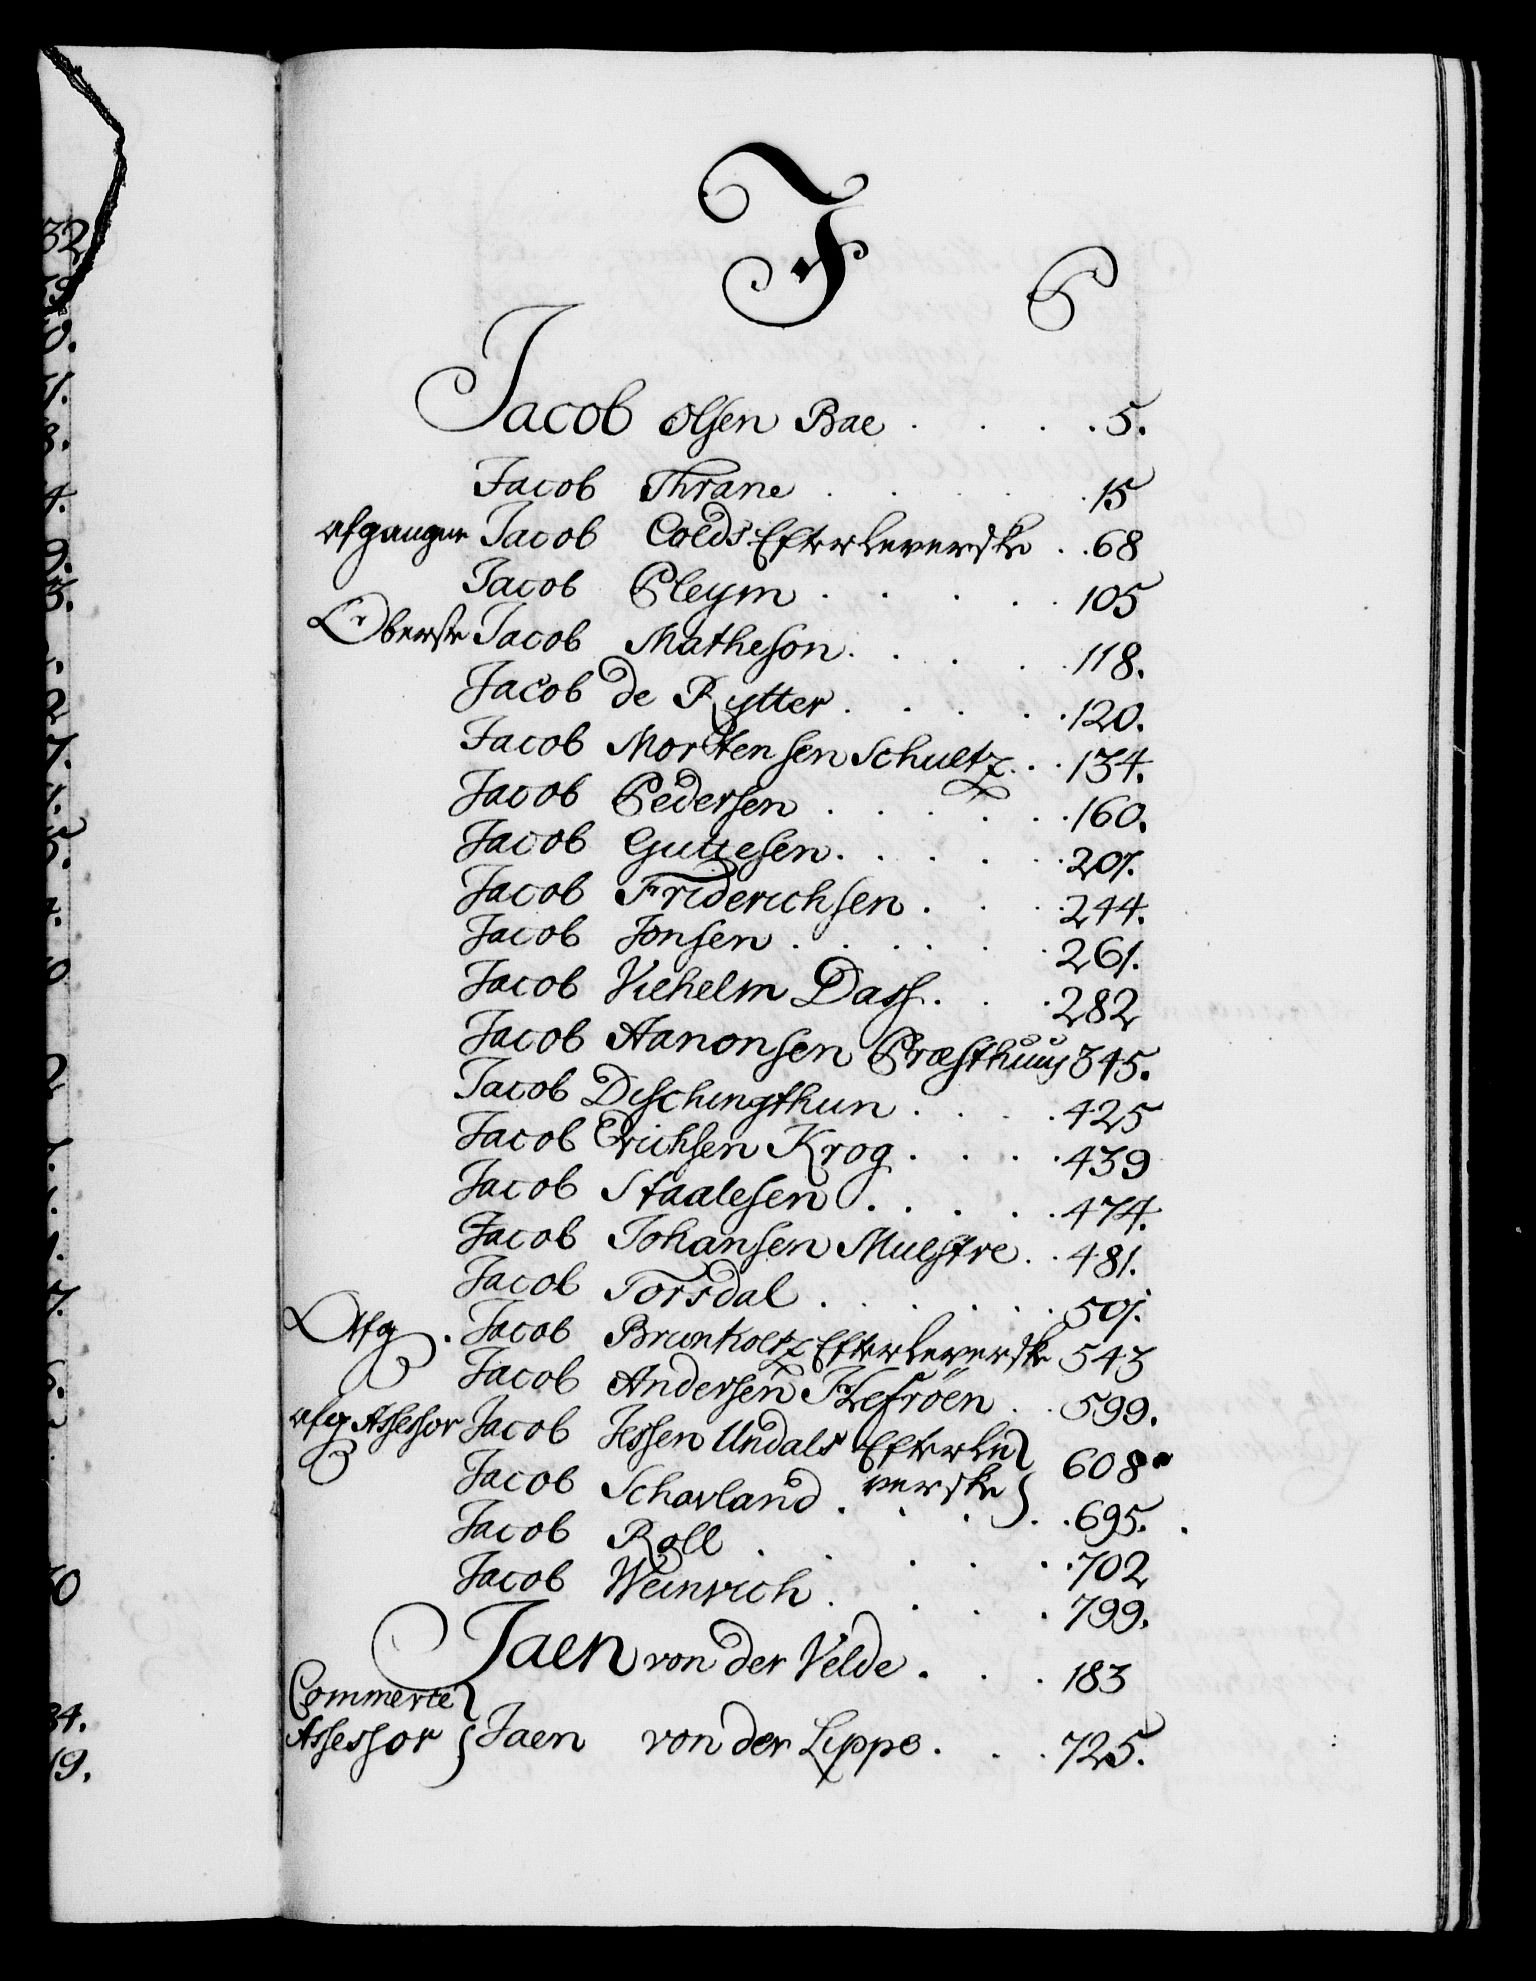 J
P
Jacob Olsen Bae . . . . 5.
Jacob Thrane . . . . . 15
afgangne Jacob Colds Efterleverske . . 68
Jacob Pleym . . . . . 105
Oberste Jacob Matheson . . . . 118.
Jacob de Rytter . . . . . 120.
Jacob Mortensen Schultz . . 134.
Jacob Pedersen . . . . . 160.
Jacob Guttesen . . . . . 207.
Jacob Friderichsen . . . 244.
Jacob Jonsen . . . . . 261.
Jacob Vilhelm Dass . . . 282
Jacob Aanonsen Præsthuus 345.
Jacob Dischingthun . . . . 425
Jacob Erichsen Krog . . . . 439
Jacob Staalesen . . . . . 474.
Jacob Johansen Mulstre . . 481.
Jacob Torsdal . . . . . 507.
Afg. Jacob Brunholtz Efterleverske 543
Jacob Andersen Klefröen . . 599.
afg Assessor Jacob Jessen Undals Efterle
verske 608.
Jacob Schavland . . . . 695.
Jacob Roll . . . . . 702
Jacob Weinrich . . . . 799.
Jaen von der Velde . . . 183
Commerce
Assessor Jaen von der Lippe . . . 725.